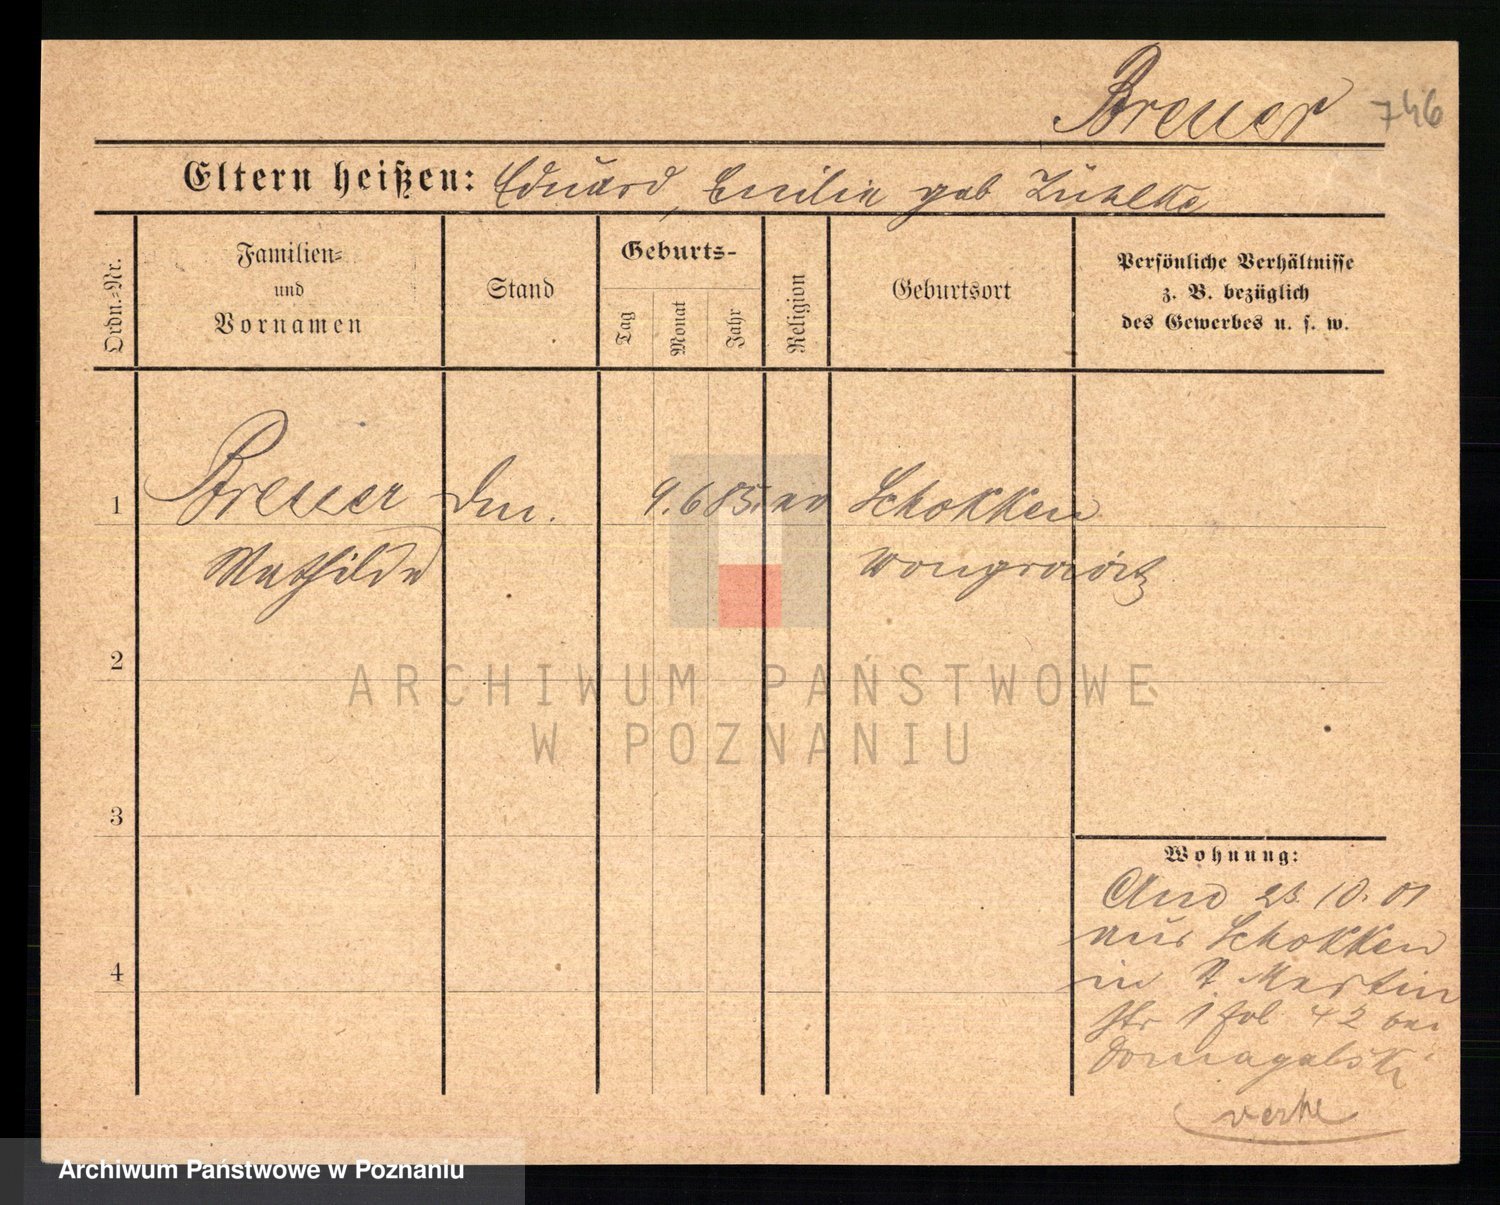 Breuer 746
Eltern heißen: Eduard, Emilie geb Lühlke
Ordn.=Nr.
Familien=
und
Vornamen
Stand
Geburts-
Tag
Monat
Jahr
Religion
Geburtsort
Persönliche Verhältnisse
z. B. bezüglich
des Gewerbes u. s. w.
1 Breuer 9.6 85. ev Schokken
Mathilde Wongrowitz
2
ARCHIWUM PAŃSTWOWE
W POZNANIU
3
Wohnung:
23.10.01
aus Schokken
4
in St Martin
str 42 bei
Domagalski
Archiwum Państwowe w Poznaniu